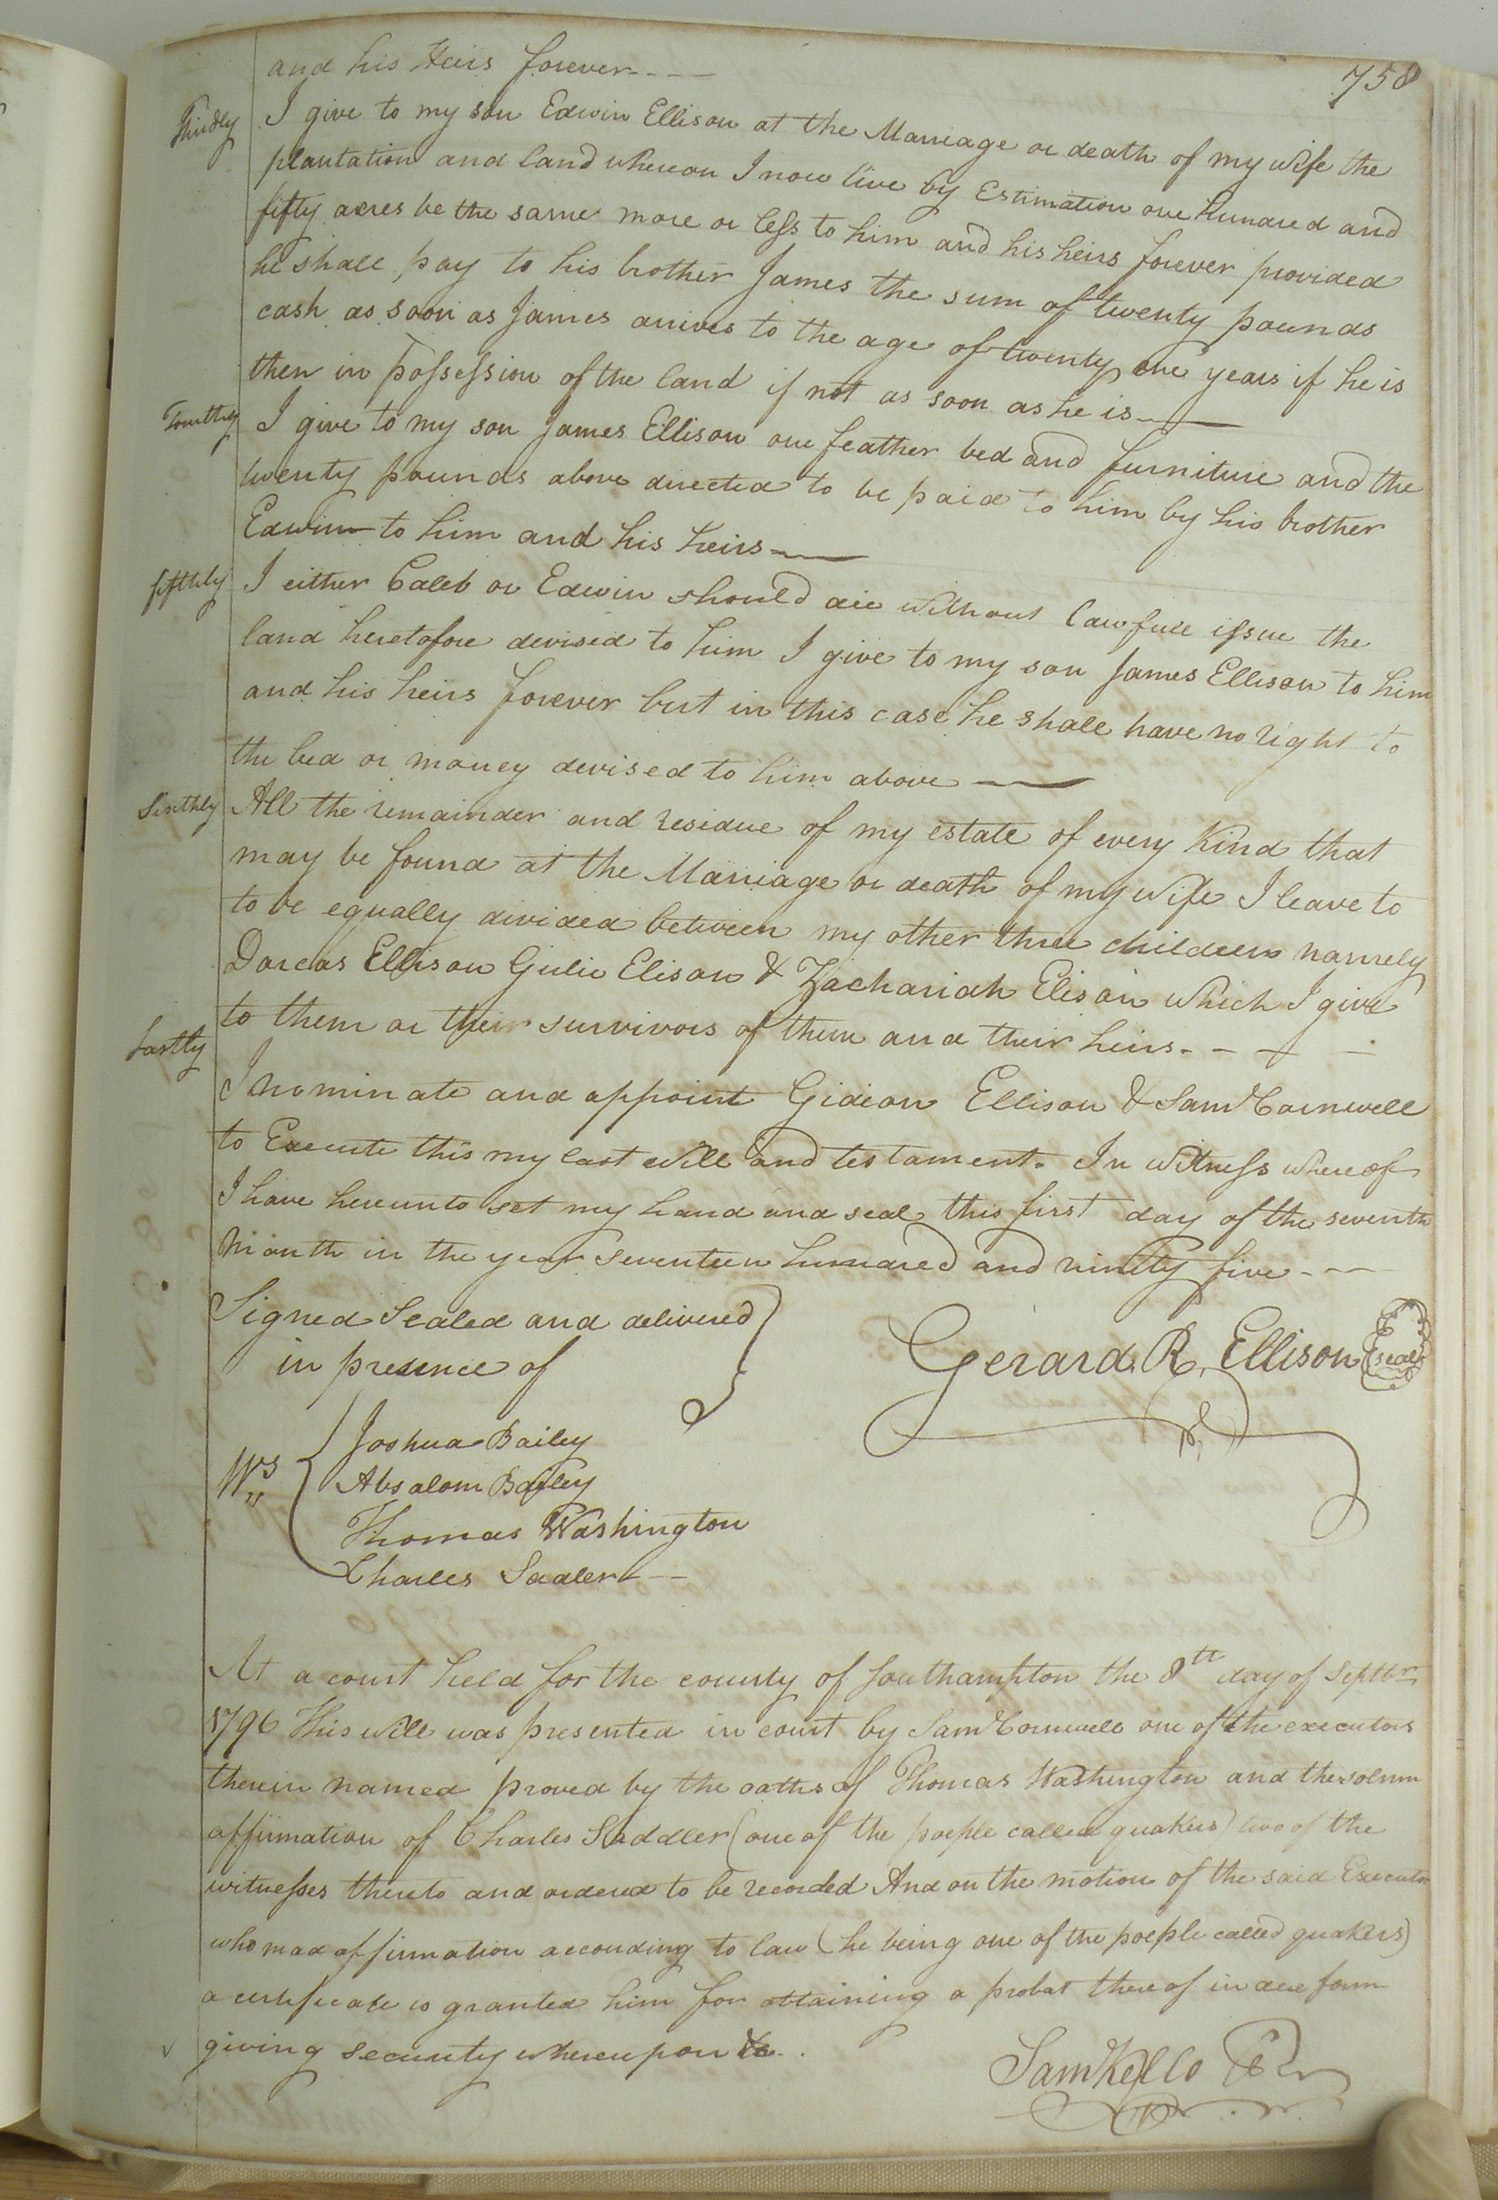 758
and his Heirs forever----
Thirdly I give to my son Edwin Ellison at the Marriage or death of my wife the
plantation and land whereon I now live by Estimation one hundred and
fifty acres be the same more or less to him and his heirs forever provided
he shall pay to his brother James the sum of twenty pounds
cash as soon as James arrives to the age of twenty one years if he is
then in possession of the land if not as soon as he is
Fourthly I give to my son James Ellison one feather bed and furniture and the
twenty pounds above directed to be paid to him by his brother
Edwin to him and his heirs
fifthly I either Caleb or Edwin should die without lawfull issue the
land heretofore devised to him I give to my son James Ellison to him
and his heirs forever but in this case he shall have no right to
the bed or money devised to him above
Sixthly All the remainder and residue of my estate of every kind that
may be found at the Marriage or death of my wife I leave to
to be equally divided between my other three children namely
Dorcas Ellison Gulie Elison & Zachariah Elison which I give
to them or their survivors of them and their heirs----
Lastly
I nominate and appoint Gideon Ellison & Saml Cornwell
to Execute this my last will and testament. In witness whereof
I have hereunto set my hand and seal this first day of the seventh
Month in the year seventeen hundred and ninety five---
Signed Sealed and delivered
in presence of
Gerard R. Ellison (seal)
Ws
Joshua Bailey
Absalom Bailey
Thomas Washington
Charles Sadler--
At a court held for the county of Southampton the 8th day of Septbr
1796 This will was presented in court by Saml Cornwell one of the executors
therein named proved by the oaths of Thomas Washington and the solemn
affirmation of Charles Saddler (one of the poeple called quakers) two of the
witnesses thereto and ordered to be recorded And on the motion of the said Executor
who mad affirmation according to law (he being one of the poeple called quakers)
a certificate is granted him for ottaining a probat thereof in due form
giving security whereupon &c.
Saml Kello